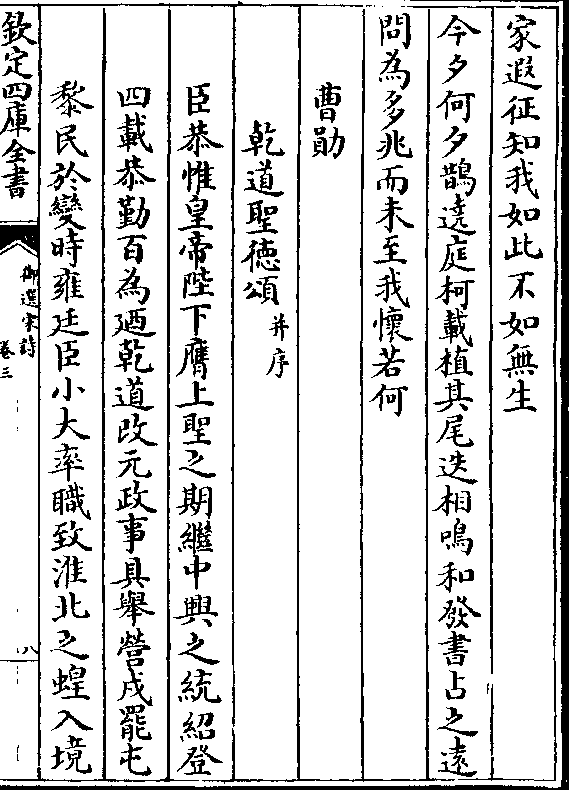 家遐征知我如此不如無生
今夕何夕鵲遶庭柯載植其尾迭相鳴和發書占之遠
問為多兆而未至我懷若何
曹勛
乾道聖德頌并序
臣恭惟皇帝陛下膺上聖之期繼中興之統紹登
四載恭勤百為廼乾道改元政事具舉營戍罷屯
黎民於變時雍廷臣小大率職致淮北之蝗入境
欽定四庫全書
御選宋詩
卷三
八